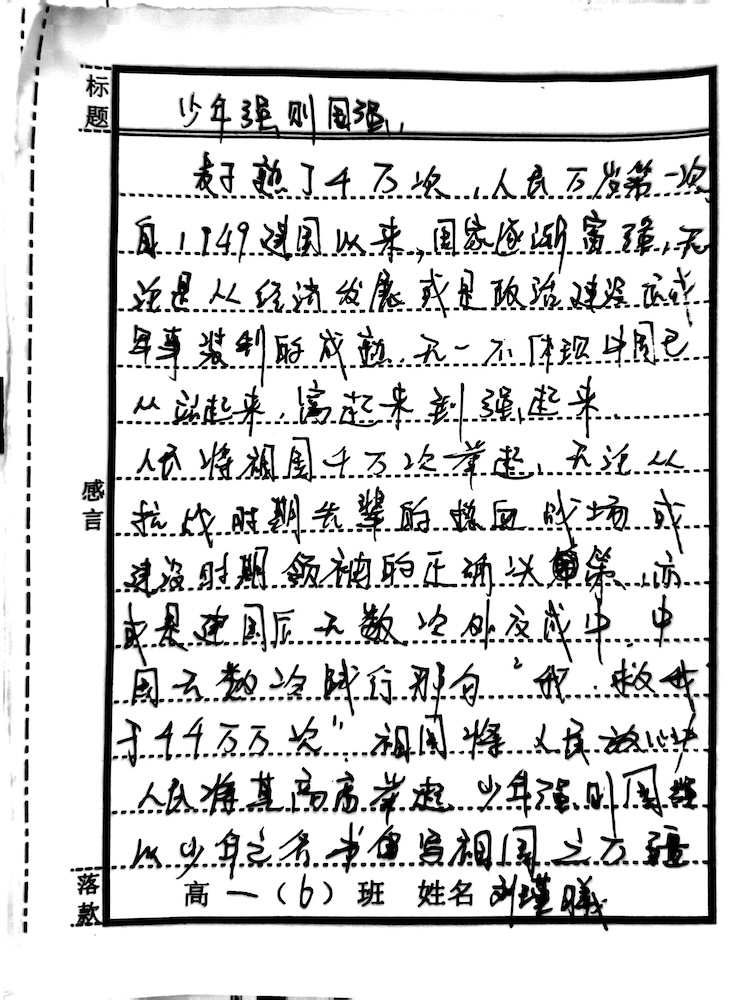 标题
少年强则国强
麦子熟了千万次,人民万岁第一次
自1949建国以来,国家逐渐富强,无
论是从经济发展或是政治建设亦或
军事装利的成熟.无一不体现中国已
从站起来,富起来到强起来.
人民将祖国千万次举起,无论从
感言
抗战时期先辈的热血战场或
建设时期领袖的正确决策,亦
或是建国后无数次外交成中,中
国无数次践行那句“我救我
于千千万万次”祖国将人民放心中
人民将其高高举起少年强则国强
以少年之名书写祖国之万疆
落款
高一(6)班 姓名 刘瑾曦